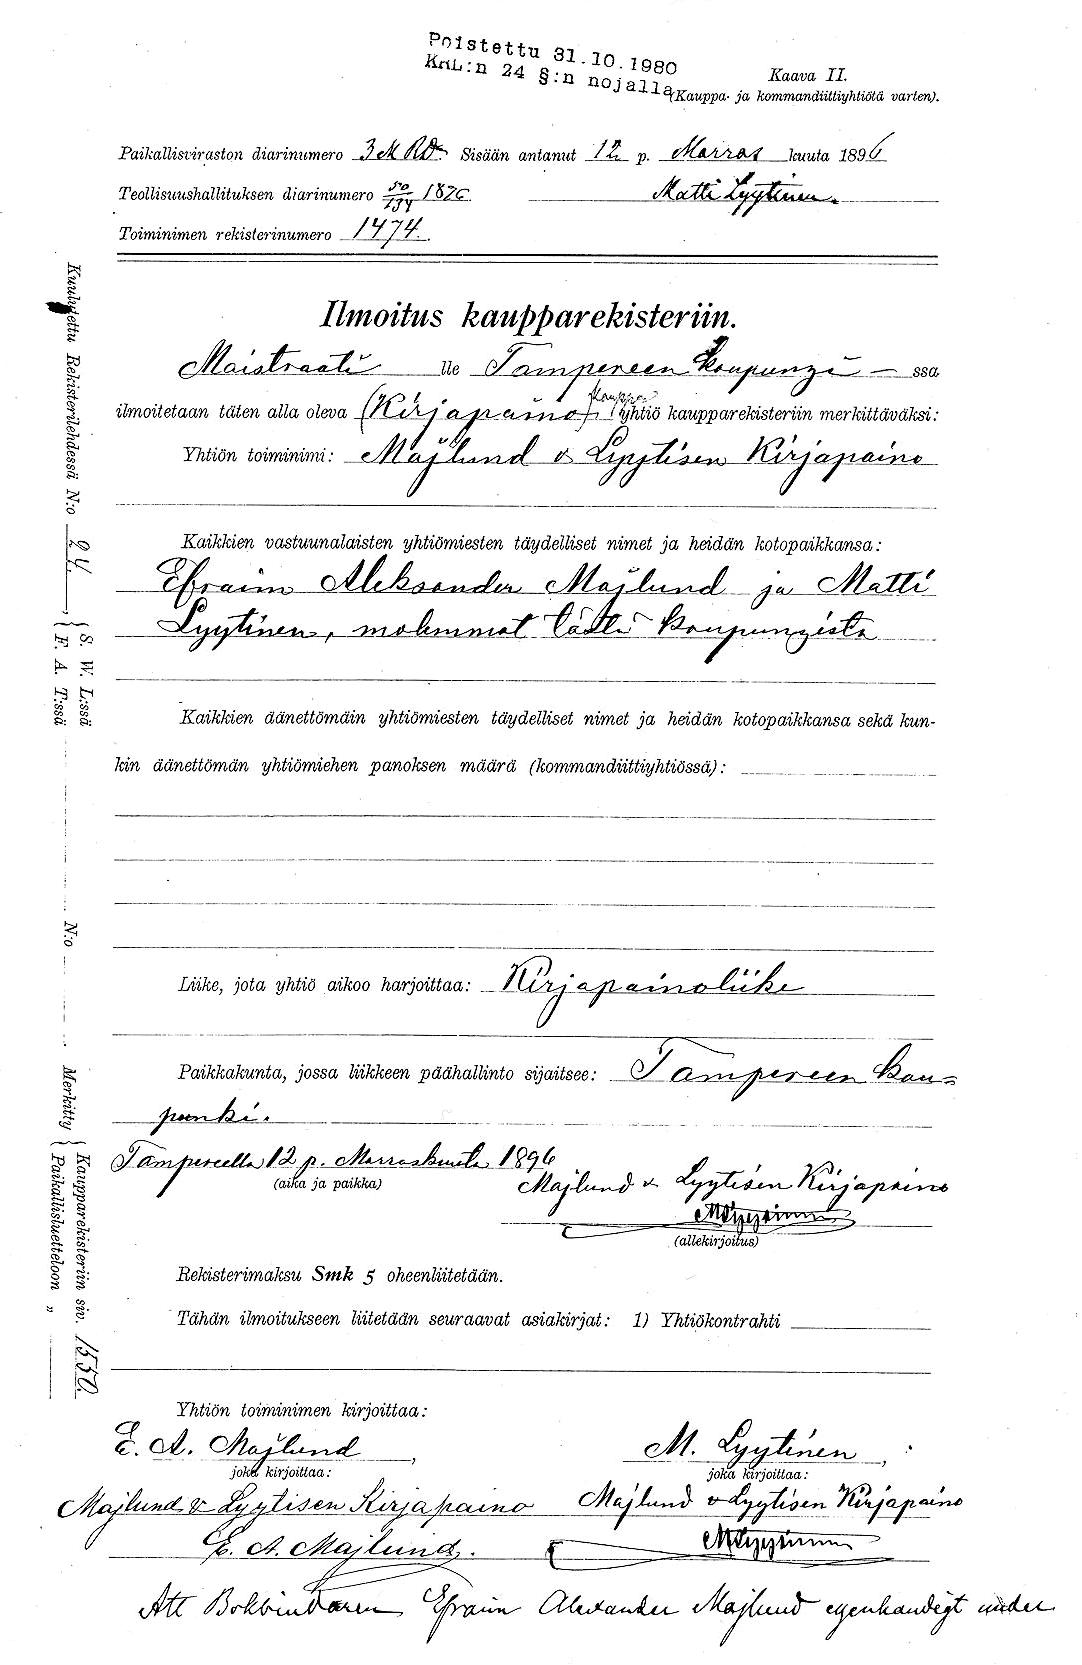 Poistettu 31.10.1980
KRL:n 24 §:n nojalla
Kaava II.
(Kauppa- ja kommandiittiyhtiötä varten).
Paikallisviraston diarinumero 3 Sisään antanut 12 p. Marras kuuta 1896
Teollisuushallituksen diarinumero 50/134 1896. Matti Lyytinen.
Toiminimen rekisterinumero 1474.
Ilmoitus kaupparekisteriin.
Maistraati lle Tampereen kaupungi – ssa
ilmoitetaan täten alla oleva (Kirjapaino) kauppa yhtiö kaupparekisteriin merkittäväksi:
Yhtiön toiminimi: Majlund & Lyytisen Kirjapaino
Kaikkien vastuunalaisten yhtiömiesten täydelliset nimet ja heidän kotopaikkansa:
Efraim Aleksander Majlund ja Matti
Lyytinen, molemmat tästä kaupungista
Kaikkien äänettömäin yhtiömiesten täydelliset nimet ja heidän kotopaikkansa sekä kun-
kin äänettömän yhtiömiehen panoksen määrä (kommandiittiyhtiössä):
Liike, jota yhtiö aikoo harjoittaa: Kirjapainoliike
Paikkakunta, jossa liikkeen päähallinto sijaitsee: Tampereen kau-
punki.
Tampereella 12 p. Marraskuuta 1896
(aika ja paikka)
Majlund & Lyytisen Kirjapaino
MLyytinen
(allekirjoitus)
Rekisterimaksu Smk 5 oheenliitetään.
Tähän ilmoitukseen liitetään seuraavat asiakirjat: 1) Yhtiökontrahti
Yhtiön toiminimen kirjoittaa:
E. A. Majlund, M. Lyytinen,
joka kirjoittaa: joka kirjoittaa:
Majlund & Lyytisen Kirjapaino Majlund & Lyytisen Kirjapaino
E. A. Majlund. MLyytinen
Att Bokbindaren Efraim Alexander Majlund egenhändigt under
Kuulutettu Rekisterilehdessä N:o 24, { S. W. L:ssä
F. A. T:ssä N:o
Merkitty { Kaupparekisteriin siv. 1550.
Paikallisluetteloon „